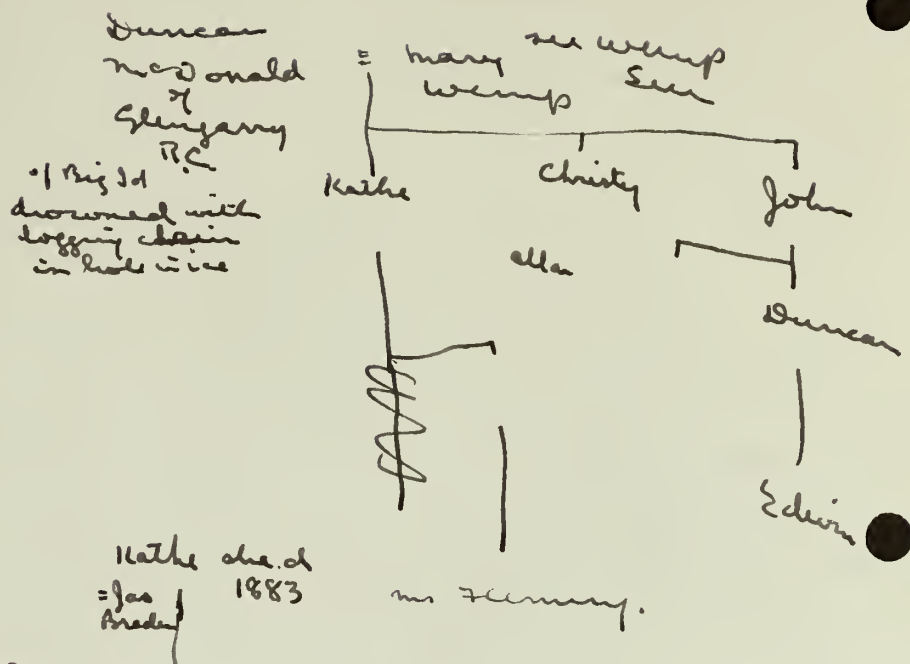 Duncan
McDonald
of
Glengarry
R.C.
of Big Id
drowned with
logging chain
in hole in ice
= Mary
Wemp
see Wemp
Kathe
Christy
John
allan
Duncan
Edwin
Kathe
1883
= Jas
Breden